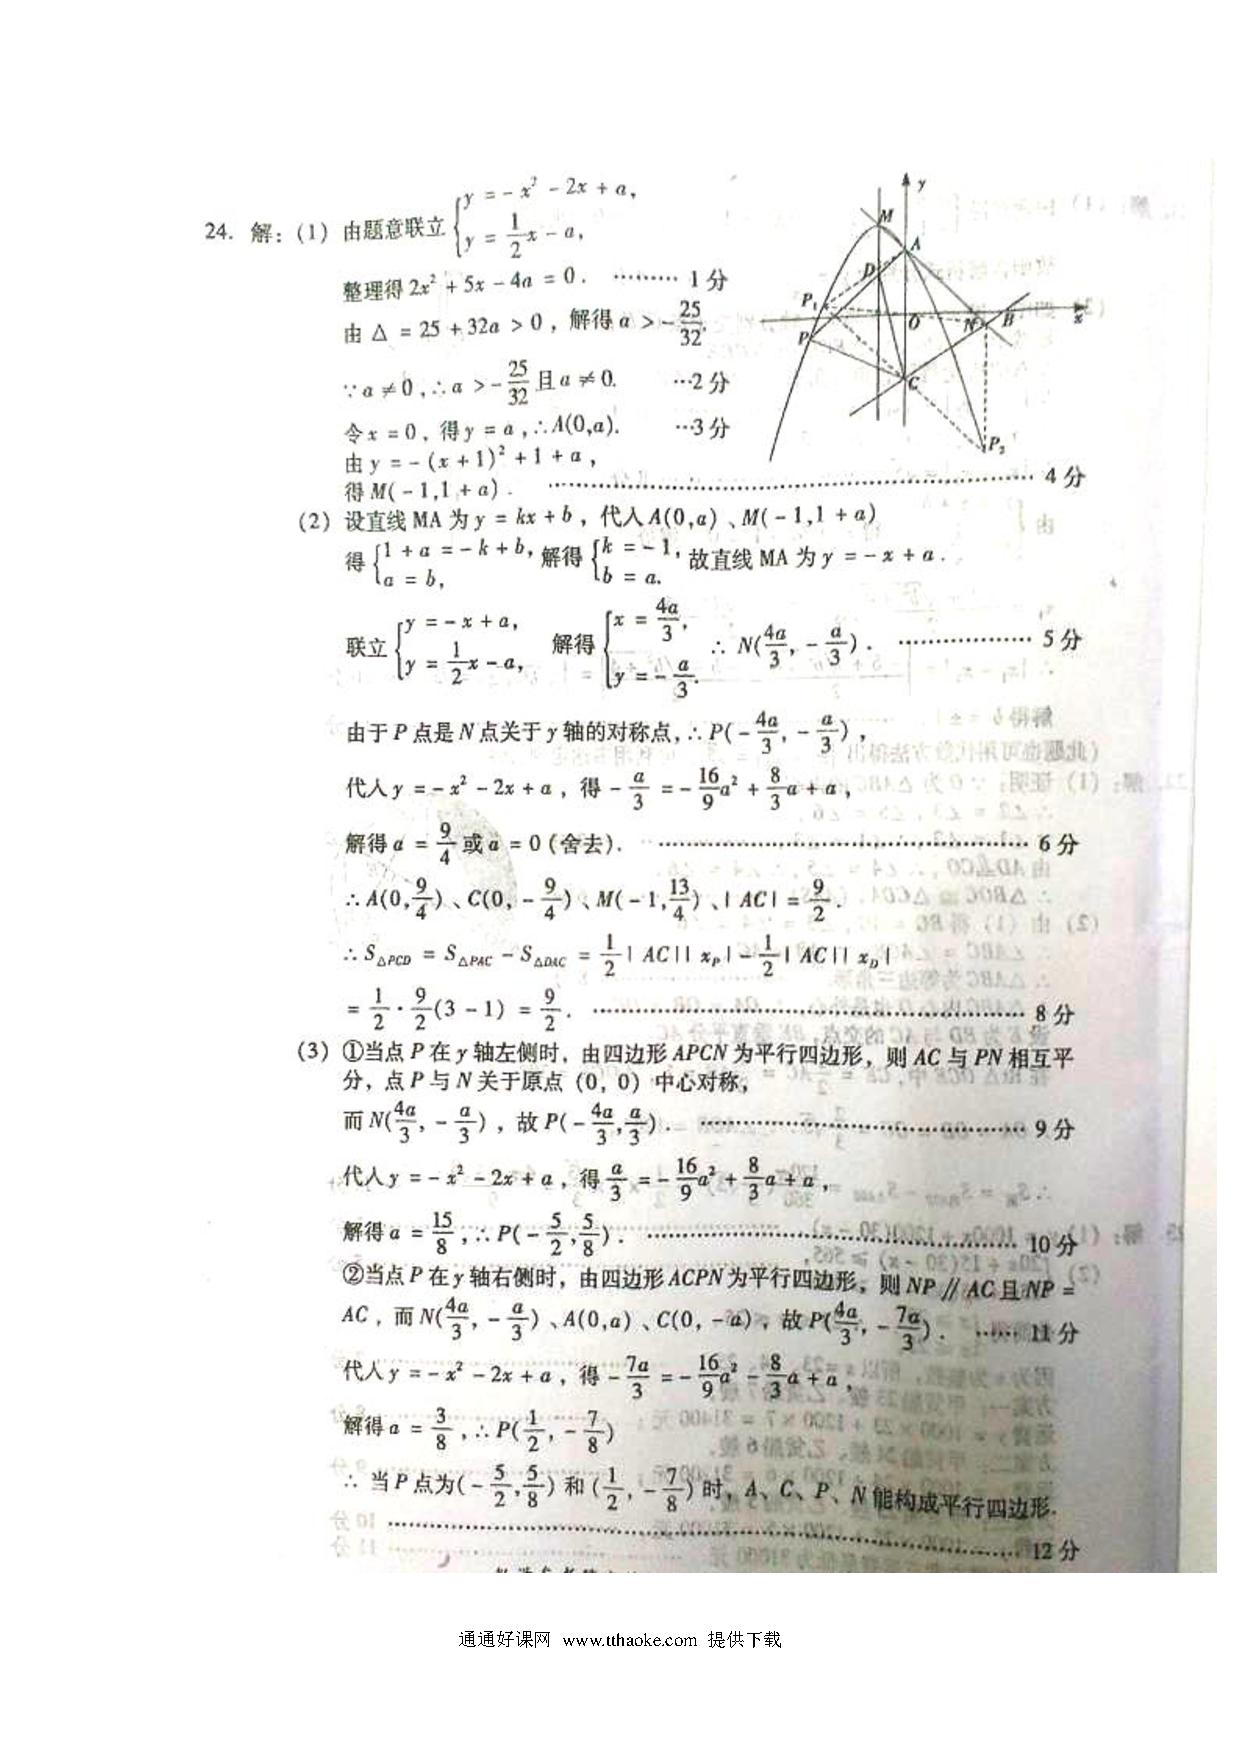 24. 解：(1) 由题意联立 {y = -x² - 2x + a, y = 1/2 x - a,
整理得 2x² + 5x - 4a = 0. ……… 1分
由 Δ = 25 + 32a > 0，解得 a > -25/32.
∵ a ≠ 0，∴ a > -25/32 且 a ≠ 0. …2分
令 x = 0，得 y = a，∴ A(0,a). …3分
由 y = -(x + 1)² + 1 + a，
得 M(-1,1 + a). ……… 4分
y
M
A
D
P₁
O
N
B
x
P
C
P₂
(2) 设直线 MA 为 y = kx + b，代入 A(0,a)、M(-1,1 + a)
得 {1 + a = -k + b, a = b, 解得 {k = -1, b = a. 故直线 MA 为 y = -x + a.
联立 {y = -x + a, y = 1/2 x - a, 解得 {x = 4a/3, y = -a/3. ∴ N(4a/3, -a/3). ……… 5分
由于 P 点是 N 点关于 y 轴的对称点，∴ P(-4a/3, -a/3)，
代入 y = -x² - 2x + a，得 -a/3 = -16/9 a² + 8/3 a + a，
解得 a = 9/4 或 a = 0 (舍去). ……… 6分
∴ A(0,9/4)、C(0, -9/4)、M(-1,13/4)、|AC| = 9/2.
∴ S△PCD = S△PAC - S△DAC = 1/2 |AC||xP| - 1/2 |AC||xD|
= 1/2 · 9/2 (3 - 1) = 9/2. ……… 8分
(3) ①当点 P 在 y 轴左侧时，由四边形 APCN 为平行四边形，则 AC 与 PN 相互平
分，点 P 与 N 关于原点 (0, 0) 中心对称，
而 N(4a/3, -a/3)，故 P(-4a/3, a/3). ……… 9分
代入 y = -x² - 2x + a，得 a/3 = -16/9 a² + 8/3 a + a，
解得 a = 15/8，∴ P(-5/2, 5/8). ……… 10分
②当点 P 在 y 轴右侧时，由四边形 ACPN 为平行四边形，则 NP ∥ AC 且 NP =
AC，而 N(4a/3, -a/3)、A(0,a)、C(0, -a)，故 P(4a/3, -7a/3). …… 11分
代入 y = -x² - 2x + a，得 -7a/3 = -16/9 a² - 8/3 a + a，
解得 a = 3/8，∴ P(1/2, -7/8)
∴ 当 P 点为 (-5/2, 5/8) 和 (1/2, -7/8) 时，A、C、P、N 能构成平行四边形.
……… 12分
通通好课网 www.tthaoke.com 提供下载